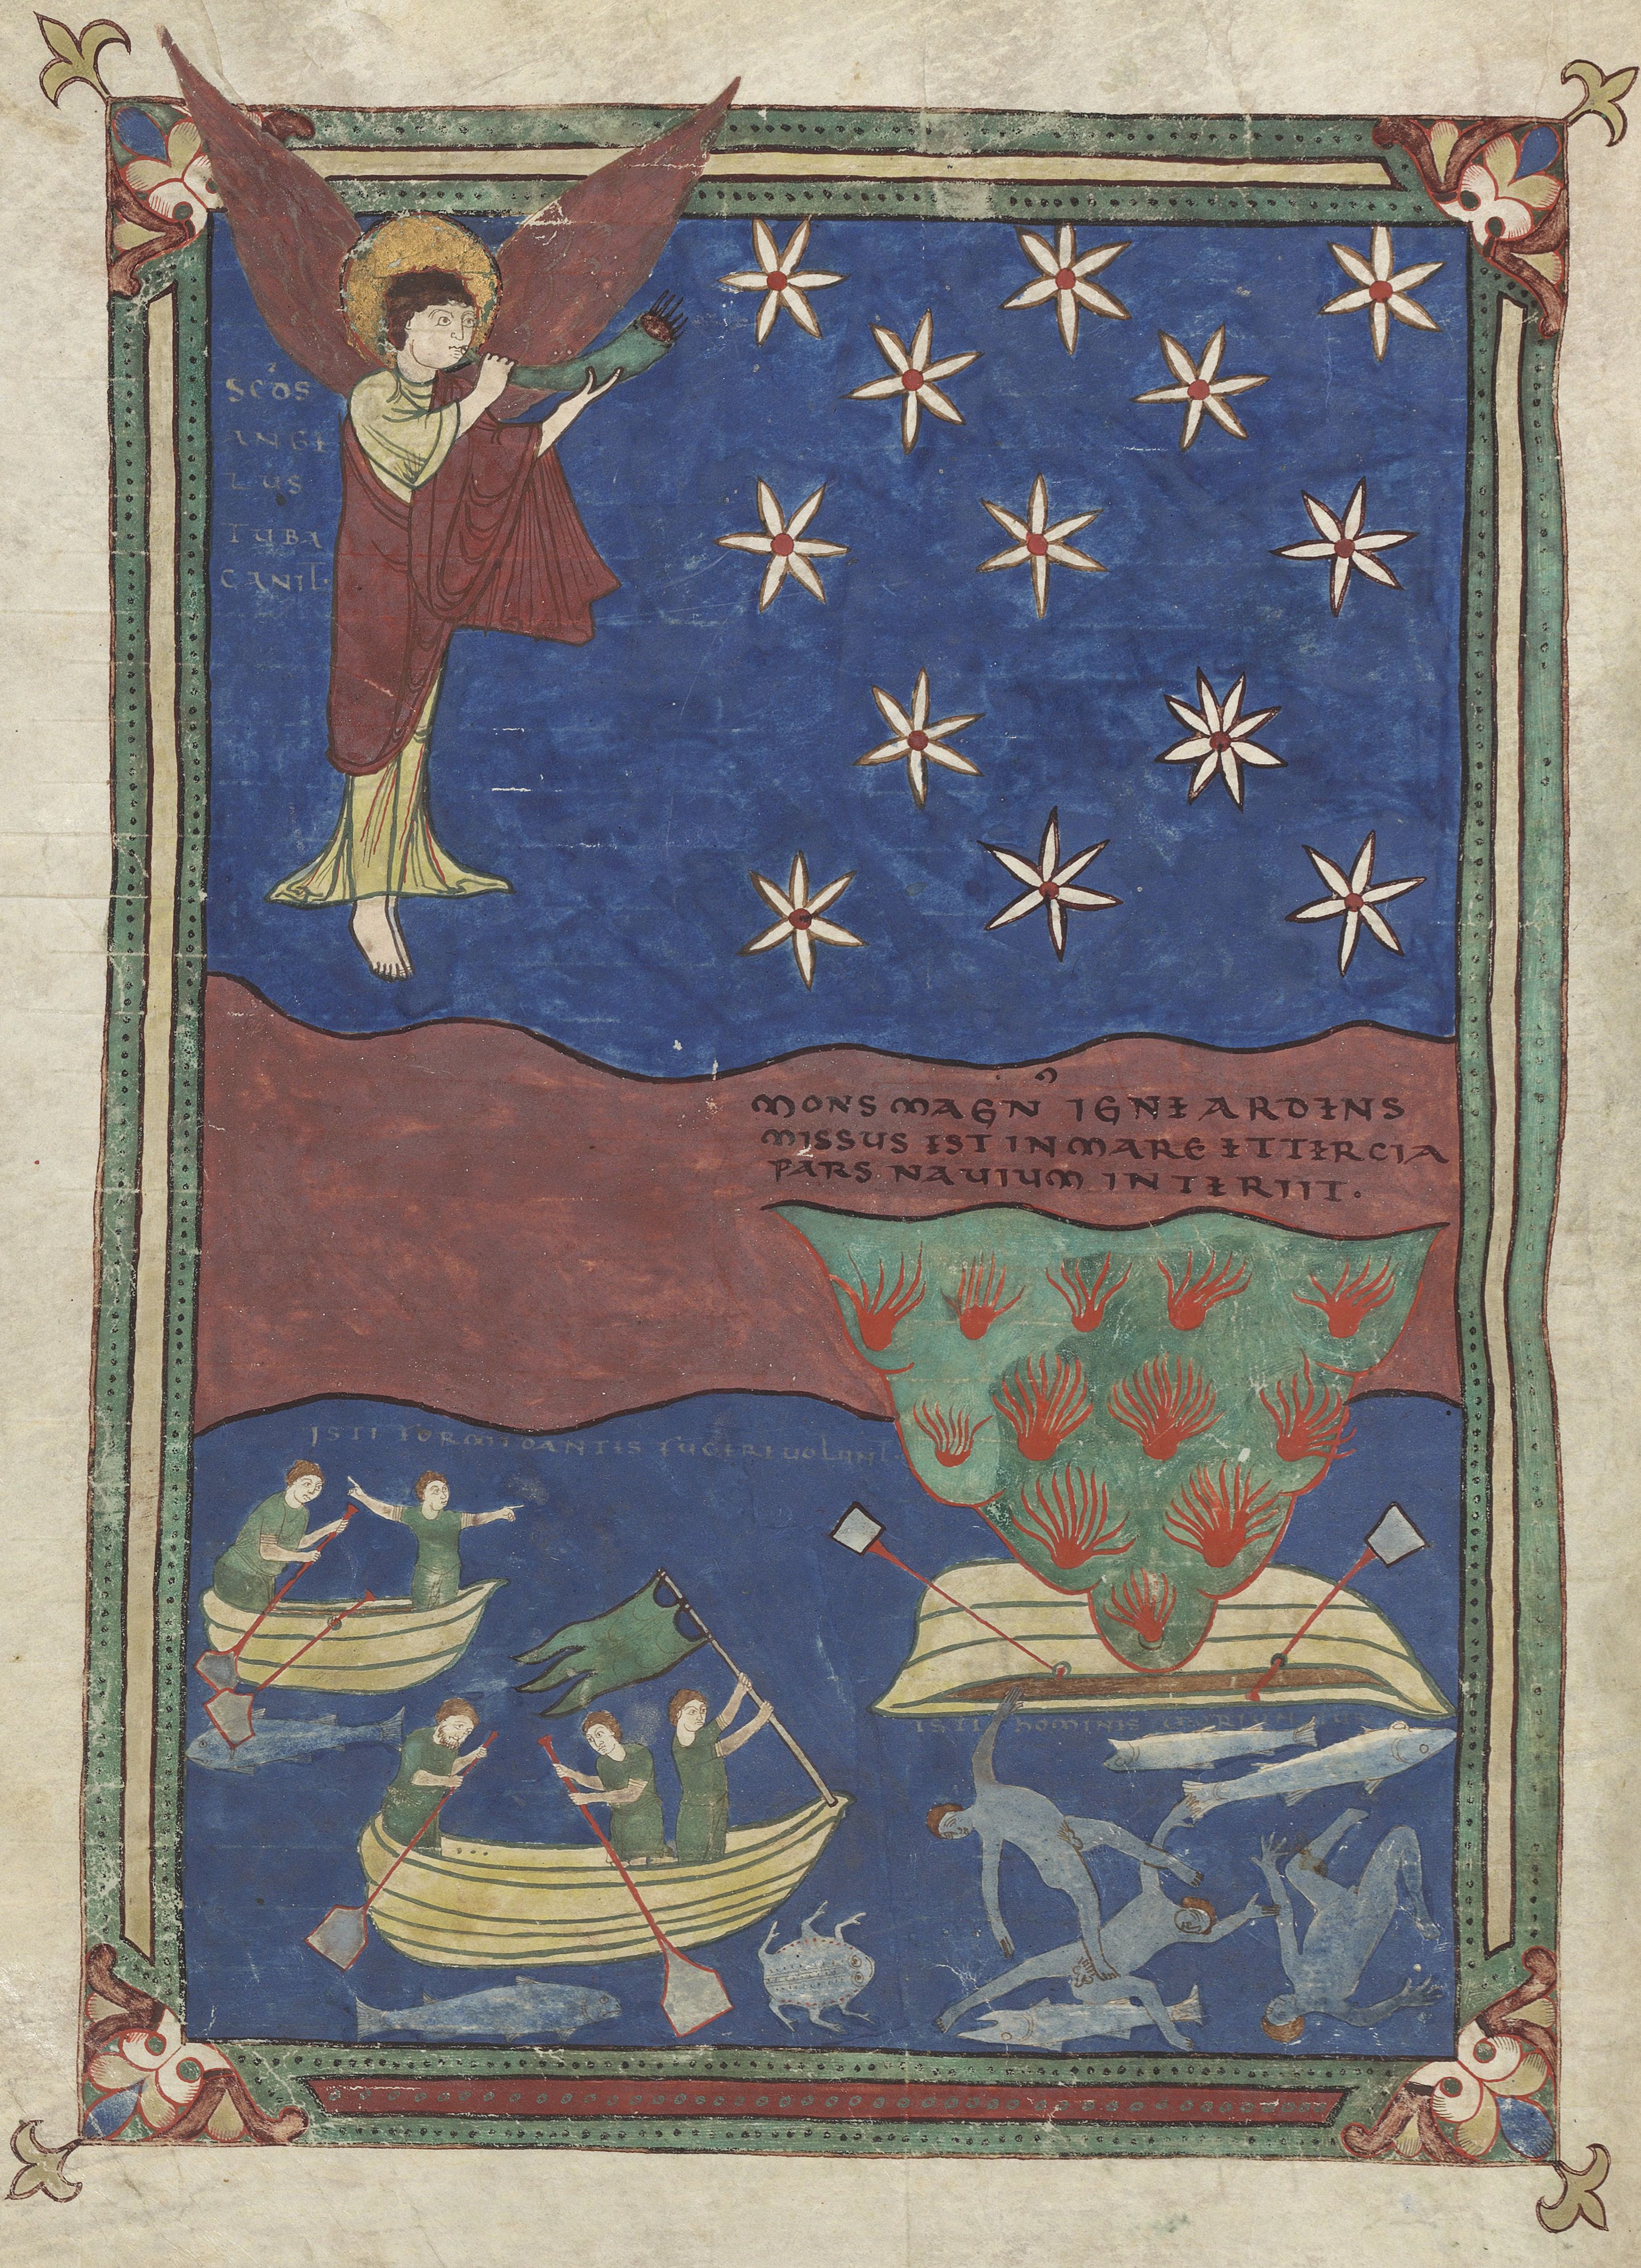 SCĎS
ANGE
LUS
TUBA
CANIT
MONS MAGN̉ IGNE ARDENS
MISSUS EST IN MARE ET TERCIA
PARS NAVIUM INTERIIT.
ISTI FORMIDANTES FUGERE VOLUNT.
ISTI HOMINES